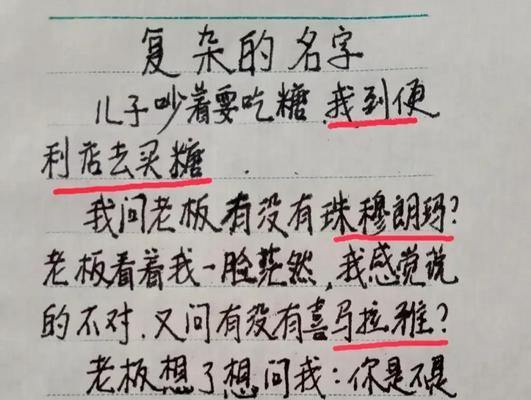 复杂的名字
儿子吵着要吃糖,我到便
利店去买糖
我问老板有没有珠穆朗玛?
老板看着我一脸茫然,我感觉说
的不对.又问有没有喜马拉雅?
老板想了想问我:你是不是